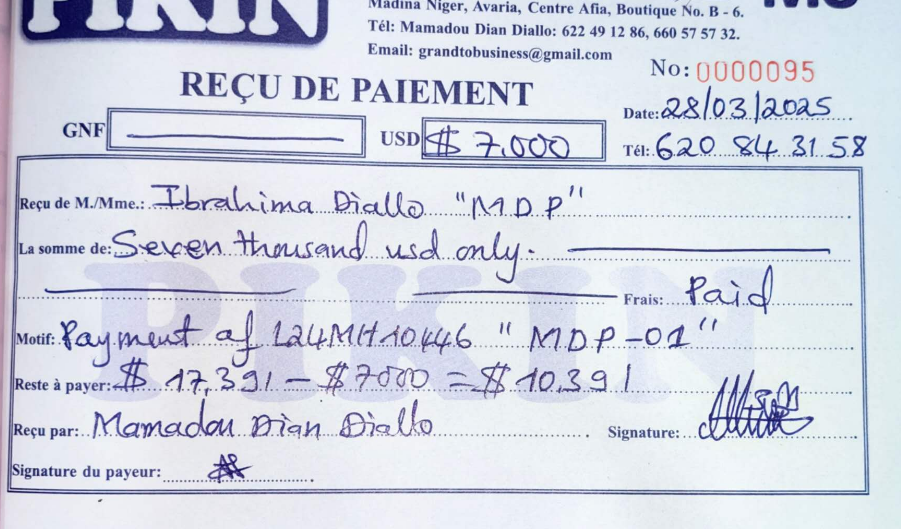 PIKIN
Madina Niger, Avaria, Centre Afia, Boutique No. B - 6.
Tél: Mamadou Dian Diallo: 622 49 12 86, 660 57 57 32.
Email: grandtobusiness@gmail.com
No: 0000095
REÇU DE PAIEMENT
Date: 28/03/2025
GNF USD $ 7.000
Tél: 620 84 31 58
Reçu de M./Mme.: Ibrahima Diallo "MDP"
La somme de: Seven thousand usd only.
Frais: Paid
Motif: Payment of L24MH10446 "MDP-01"
Reste à payer: $ 17,391 - $7000 = $10.391
Reçu par: Mamadou Dian Diallo Signature:
Signature du payeur:
PIKIN